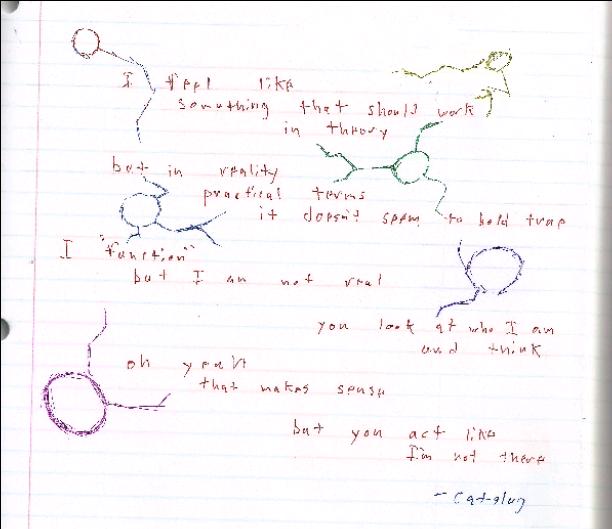 I feel like
something that should work
in theory
but in reality
practical terms
it doesn't seem to hold true
I "function"
but I am not real
you look at who I am
and think
oh yeah
that makes sense
but you act like
I'm not there